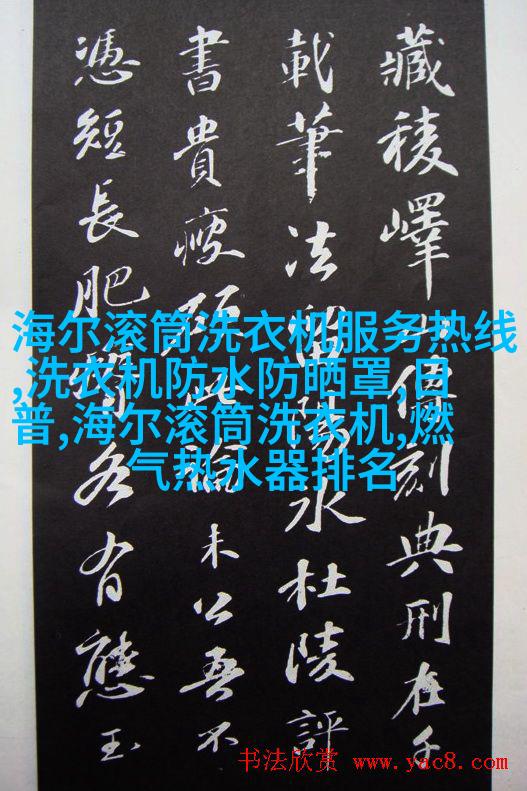 藏稜嶧山傳刻典刑在千
載筆法留陽冰杜陵評
書貴瘦硬此論未公吾不
憑短長肥瘠各有態玉
海尔滚筒洗衣机服务热线
,洗衣机防水防晒罩,日
普,海尔滚筒洗衣机,燃
气热水器排名
书法欣赏 www.yac8.com